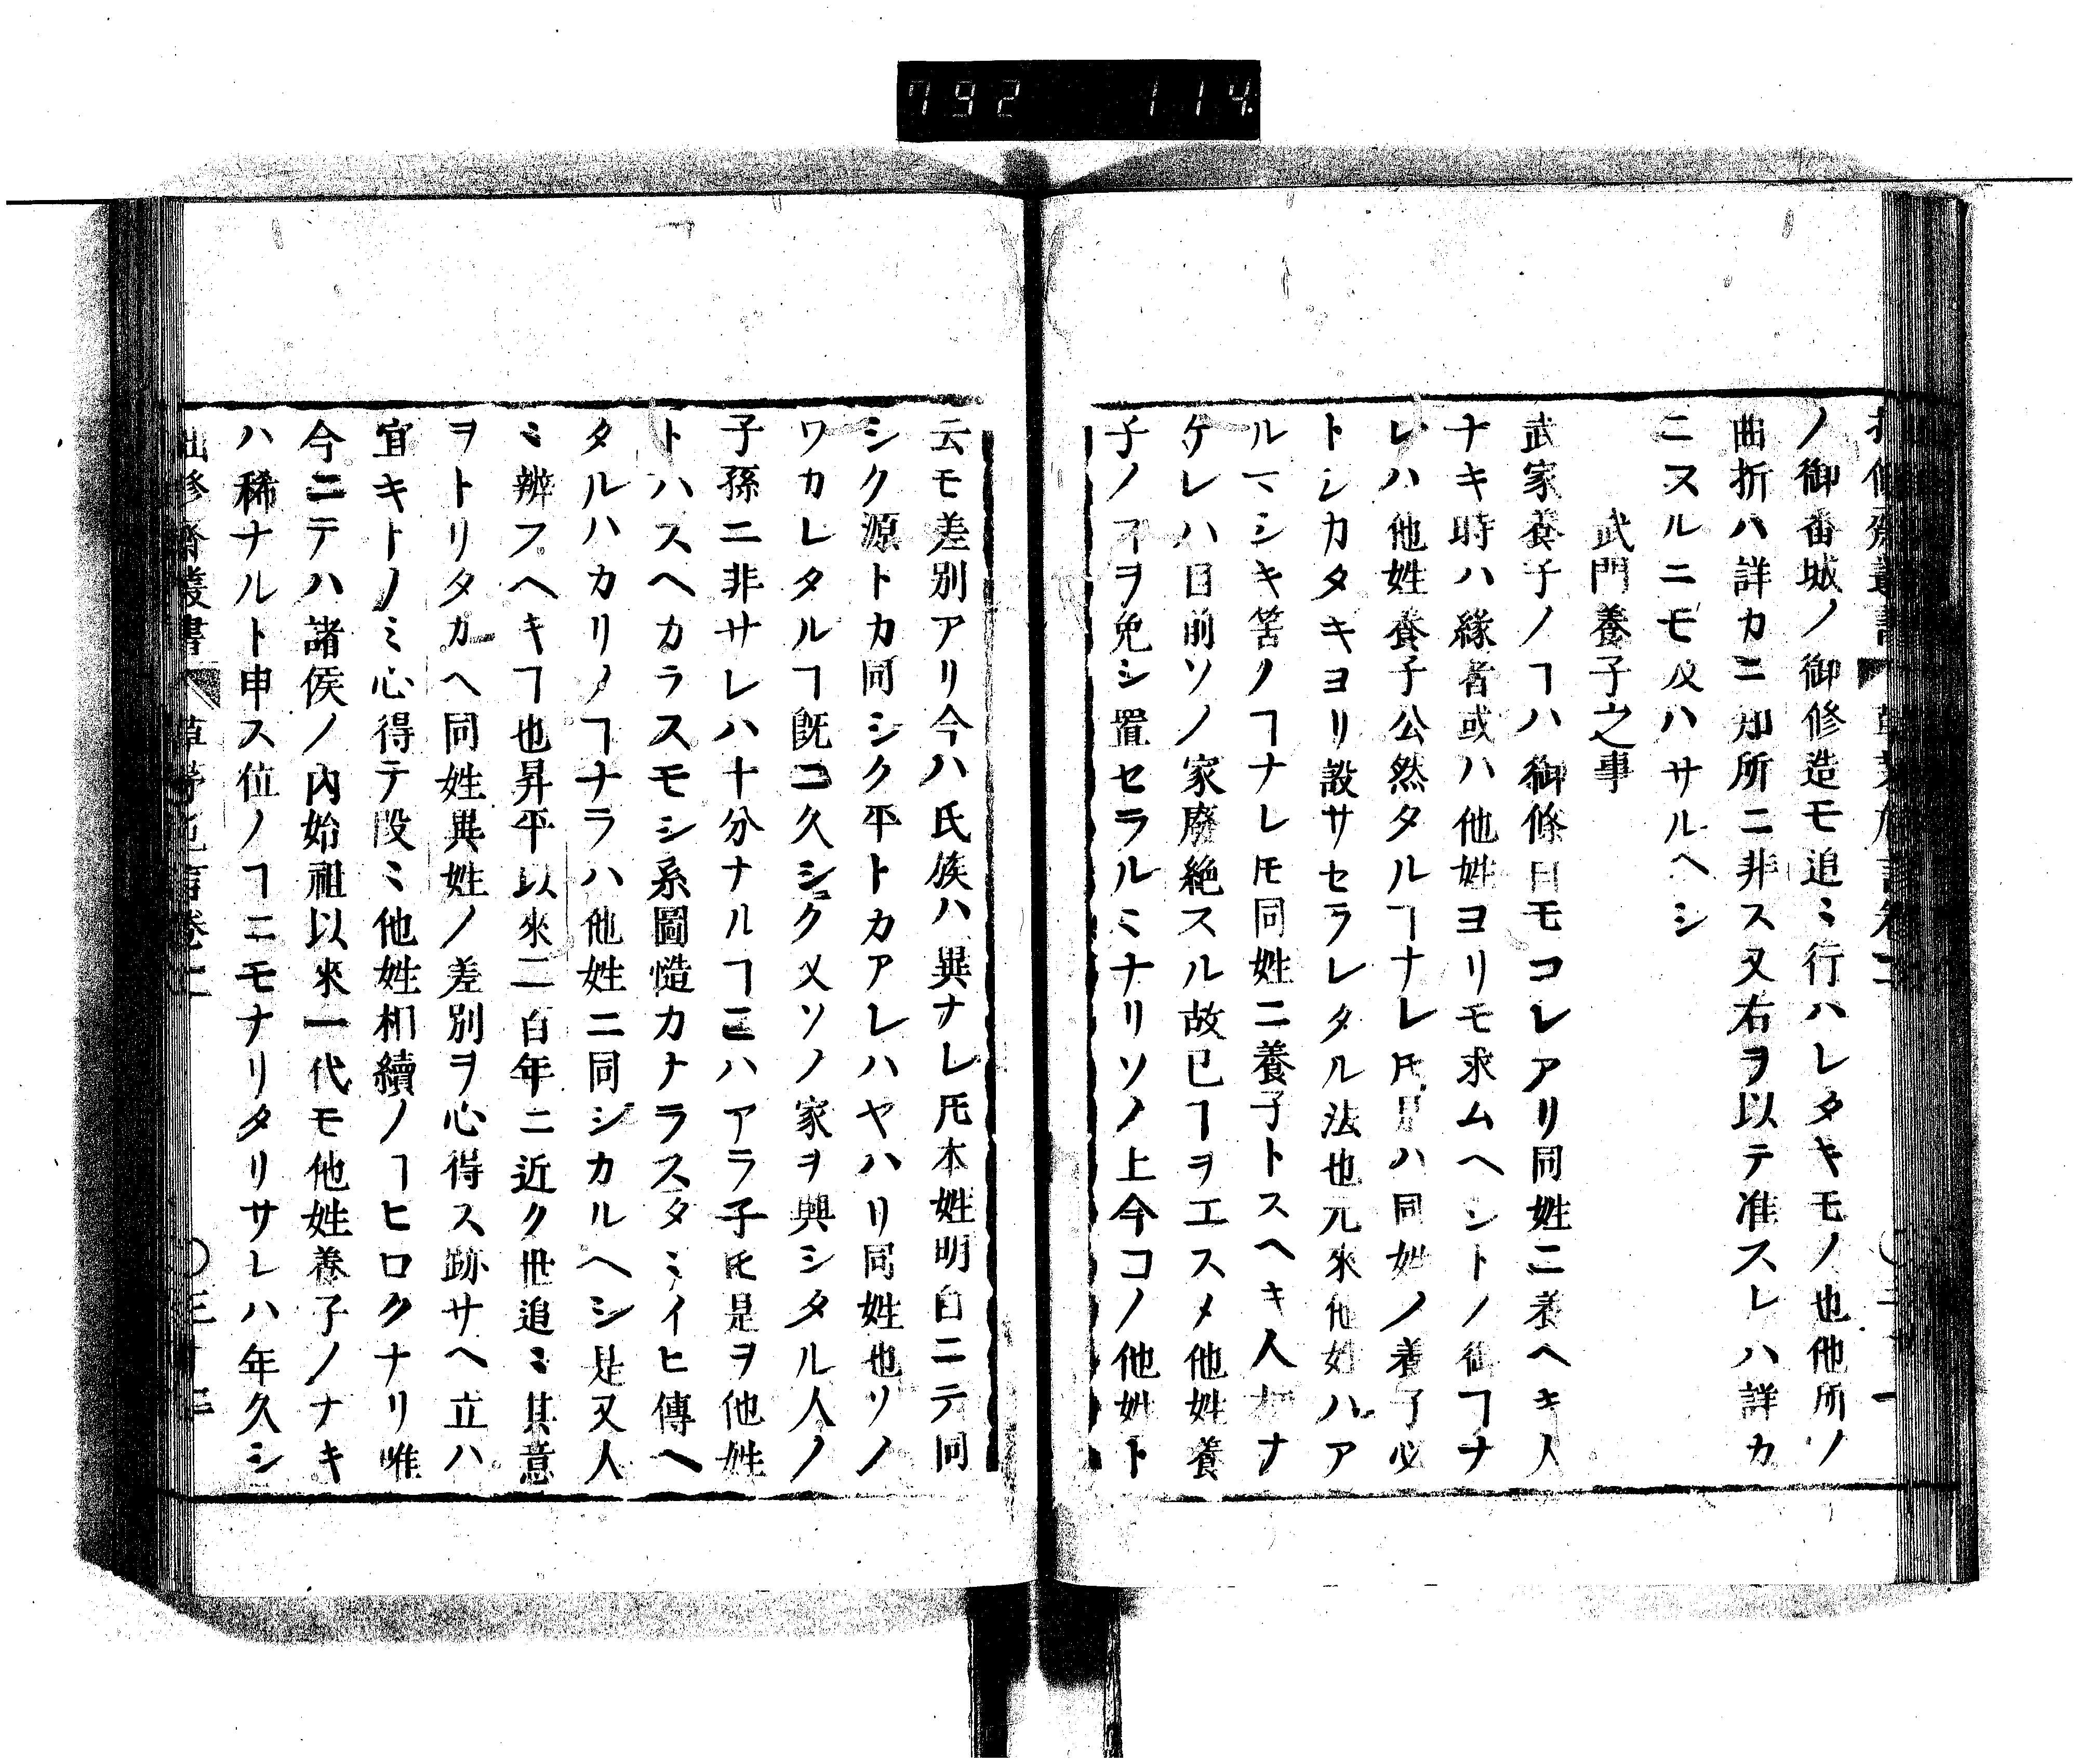 792 114
ノ御番城ノ御修造モ追ミ行ハレタキモノ也他所ソノ
曲折ハ詳カニ知所ニ非ス又右ヲ以テ准スレハ詳カ
ニスルニモ及ハサルヘシ
武門養子之事
武家養子ノヿハ御條目モコレアリ同姓ニ養ヘキ人
ナキ時ハ緣者或ハ他姓ヨリモ求ムヘシトノ御ヿナ
レハ他姓養子公然タルヿナレ𪜈是ハ同姓ノ養子必
トシカタキヨリ設サセラレタル法也元來他姓ハア
ルマシキ筈ノヿナレ𪜈同姓ニ養子トスヘキ人ナ
ケレハ目前ソノ家廢絶スル故已ヿヲエスメ他姓養
子ノヿヲ免シ置セラルミナリソノ上今コノ他姓ト
云モ差別アリ今ハ氏族ハ異ナレ𪜈本姓明白ニテ同
シク源トカ同シク平トカアレハヤハリ同姓也ソノ
ワカレタルヿ既ニ久シク又ソノ家ヲ興シタル人ノ
子孫ニ非サレハ十分ナルヿニハアラ子𪜈是ヲ他姓
トハスヘカラスモシ系圖慥カナラスタミイヒ傳ヘ
タルハカリノヿナラハ他姓ニ同シカルヘシ是又人
ミ辨フヘキヿ也昇平以來二百年ニ近ク世追ミ其意
ヲトリタカヘ同姓異姓ノ差別ヲ心得ス跡サヘ立ハ
宜キトノミ心得テ段ミ他姓相續ノヿヒロクナリ唯
今ニテハ諸侯ノ內始祖以來一代モ他姓養子ノナキ
ハ稀ナルト申ス位ノヿニモナリタリサレハ年久シ